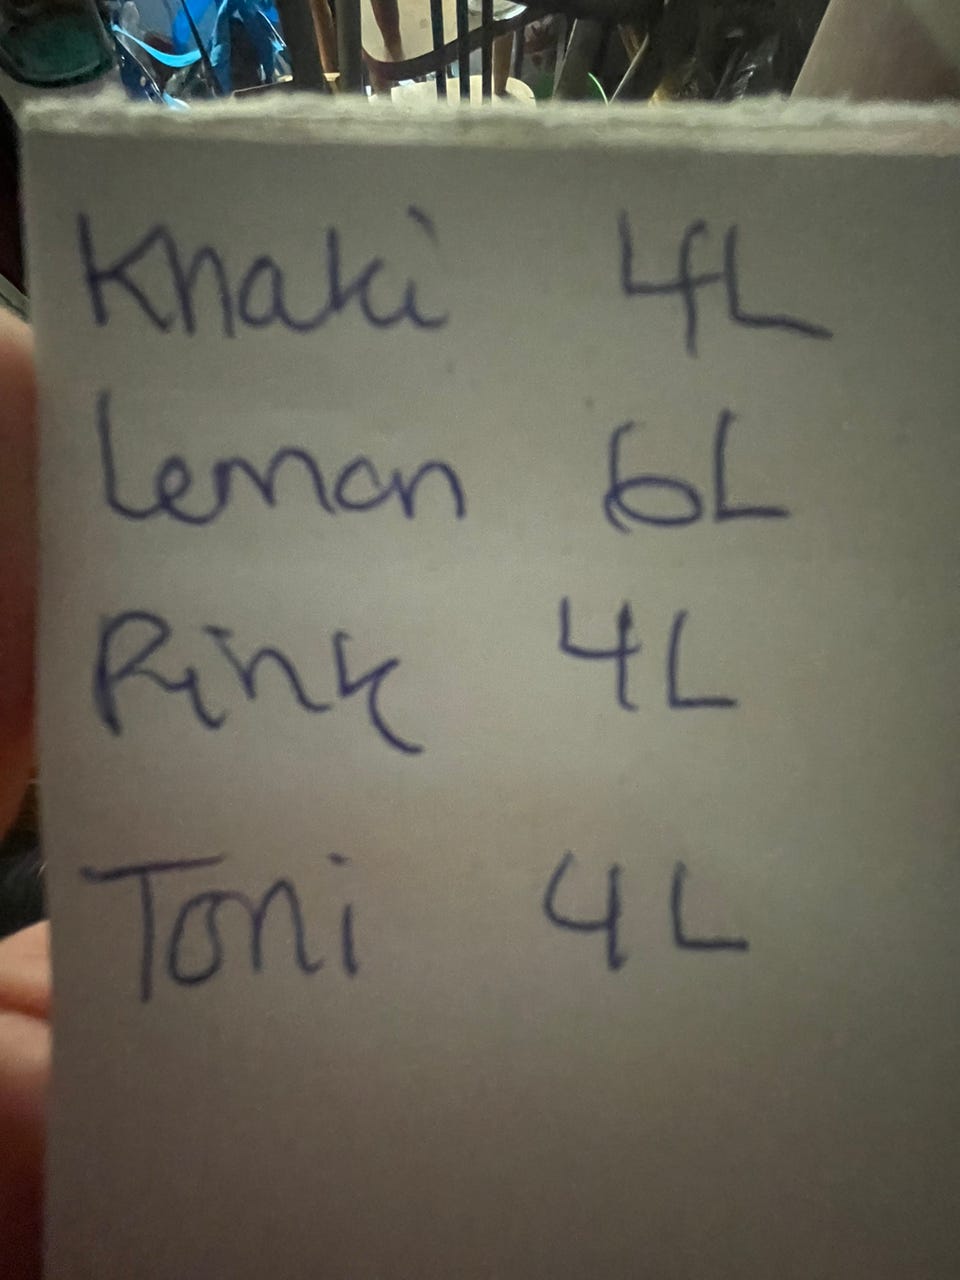 Khaki 4L
Lemon 6L
Pink 4L
Toni 4L